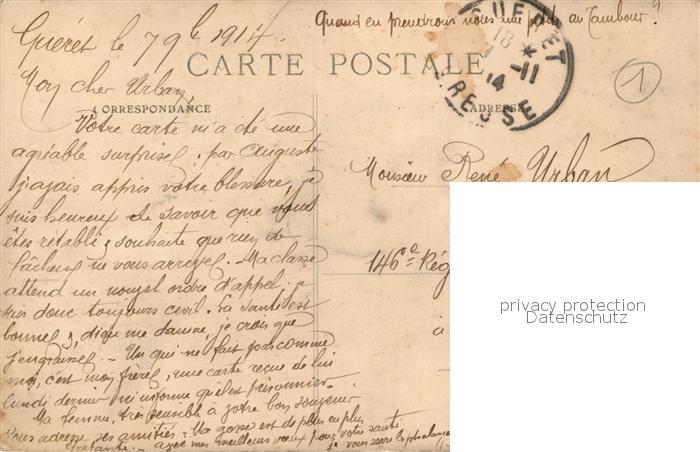 Quand en prendrons nous une partie au Tambour?
Guéret le 7 9b 1914
GUERET
18 *
-11
14
CREUSE
CARTE POSTALE
1
Mon cher Urban,
CORRESPONDANCE
ADRESSE
Votre carte m'a été une
agréable surprise, par Auguste
j'avais appris votre blessure, je
suis heureux de savoir que vous
êtes rétabli & souhaite que rien de
fâcheux ne vous arrive. - Ma classe
attend un nouvel ordre d'appel, je
suis donc toujours civil. La santé est
bonne &, dieu me damne, je crois que
j'engraisse. - Un qui ne fait pas comme
moi, c'est mon frère, une carte reçue de lui
lundi dernier m'informe qu'il est prisonnier. -
Ma femme, très sensible à votre bon souvenir
vous adresse ses amitiés - Ma gosse est de plus en plus
- avec mes meilleurs vœux pour votre santé
je vous serre les phalanges
Monsieur René Urban
146e Rég
à
privacy protection
Datenschutz